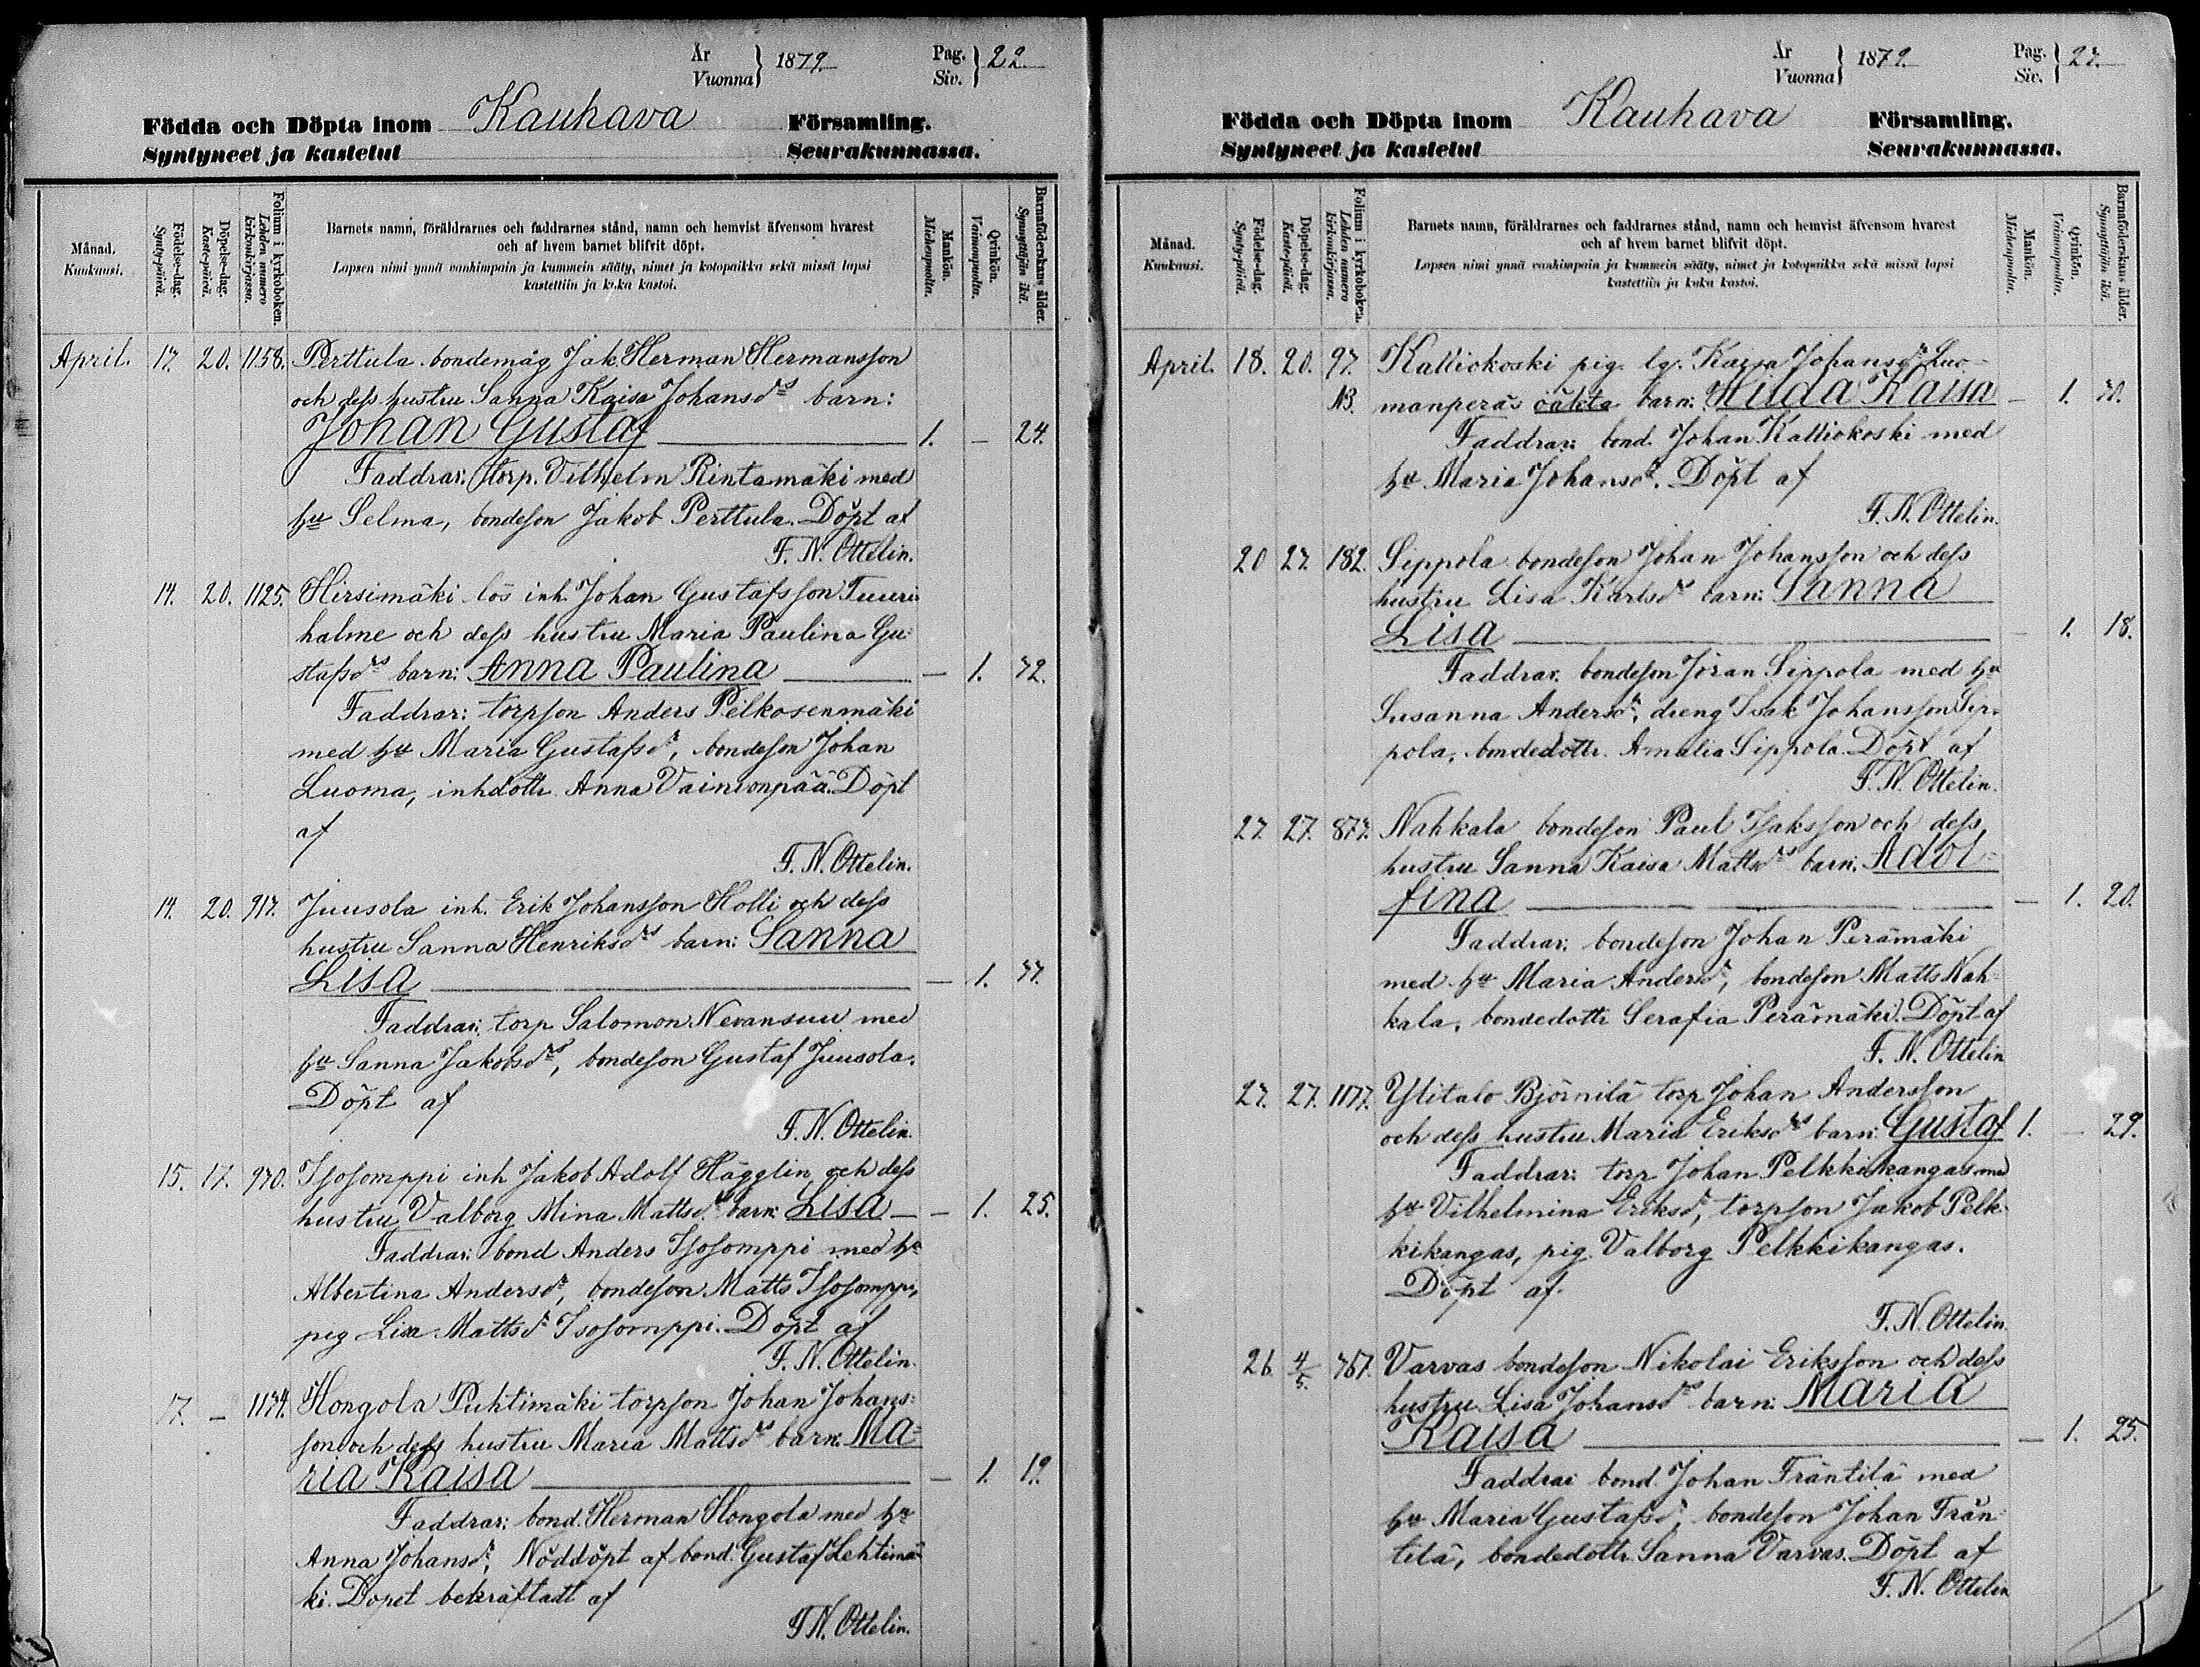 År
Vuonna } 1879.
Pag.
Siv. } 22.
Födda och Döpta inom Kauhava Församling.
Syntyneet ja kastetut Seurakunnassa.
Månad.
Kuukausi.
Födelse-dag.
Synty-päivä.
Döpelse-dag.
Kaste-päivä.
Folium i kyrkoboken.
Lehden numero kirkonkirjassa.
Barnets namn, föräldrarnes och faddrarnes stånd, namn och hemvist äfvensom hvarest
och af hvem barnet blifvit döpt.
Lapsen nimi ynnä vanhimpain ja kummein sääty, nimet ja kotopaikka sekä missä lapsi
kastettiin ja kuka kastoi.
Mankön.
Miehenpuolta.
Qvinkön.
Vaimonpuolta.
Barnaföderskans ålder.
Synnyttäjän ikä.
April. 17. 20. 1158. Perttula bondemåg Jak Herman Hermansson
och dess hustru Sanna Kaisa Johansdrs barn:
Johan Gustaf 1. – 24.
Faddrar: torp. Vilhelm Rintamäki med
hu Selma, bondeson Jakob Perttula. Döpt af
F. N. Ottelin.
14. 20. 1125. Hirsimäki lös inh. Johan Gustafsson Tuuri-
halme och dess hustru Maria Paulina Gu-
stafsdrs barn: Anna Paulina – 1. 32.
Faddrar: torpson Anders Pelkosenmäki
med hu Maria Gustafsdr, bondeson Johan
Luoma, inhdottr. Anna Vainionpää. Döpt
af
F. N. Ottelin.
14. 20. 917. Juusola inh. Erik Johansson Holli och dess
hustru Sanna Henriksdrs barn: Sanna
Lisa – 1. 37.
Faddrar: torp Salomon Nevansuu med
hu Sanna Jakobsdrs, bondeson Gustaf Juusola.
Döpt af
F. N. Ottelin.
15. 17. 930. Isosomppi inh Jakob Adolf Hägglin och dess
hustru Valborg Mina Mattsdrs barn: Lisa – 1. 25.
Faddrar: bond Anders Isosomppi med hu
Albertina Andersdr, bondeson Matts Isosomppi,
pig Lisa Mattsdr Isosomppi. Döpt af
F. N. Ottelin.
17. – 1134. Hongola Puhtimäki torpson Johan Johans-
son och dess hustru Maria Mattsdrs barn: Ma-
ria Kaisa – 1. 19.
Faddrar: bond. Herman Hongola med hu
Anna Johansdr, Nöddöpt af bond. Gustaf Lehtimä-
ki. Dopet bekräftadt af
F. N. Ottelin.
År
Vuonna } 1879.
Pag.
Siv. } 23.
Födda och Döpta inom Kauhava Församling.
Syntyneet ja kastetut Seurakunnassa.
Månad.
Kuukausi.
Födelse-dag.
Synty-päivä.
Döpelse-dag.
Kaste-päivä.
Folium i kyrkoboken.
Lehden numero kirkonkirjassa.
Barnets namn, föräldrarnes och faddrarnes stånd, namn och hemvist äfvensom hvarest
och af hvem barnet blifvit döpt.
Lapsen nimi ynnä vanhimpain ja kummein sääty, nimet ja kotopaikka sekä missä lapsi
kastettiin ja kuka kastoi.
Mankön.
Miehenpuolta.
Qvinkön.
Vaimonpuolta.
Barnaföderskans ålder.
Synnyttäjän ikä.
April. 18. 20. 97. Kalliokoski pig. lg. Kaisa Johansdr Luo-
manperäs oäkta barn: Hilda Kaisa – 1. 30.
Faddrar: bond. Johan Kalliokoski med
hu Maria Johansdr. Döpt af
F. N. Ottelin.
20 27. 182. Sippola bondeson Johan Johansson och dess
hustru Lisa Karlsdrs barn: Sanna
Lisa – 1. 18.
Faddrar: bondeson Jöran Sippola med hu
Susanna Andersdr, dreng Isak Johansson Sip-
pola, bondedottr. Amalia Sippola. Döpt af
F. N. Ottelin.
27. 27. 877. Nahkala bondeson Paul Isaksson och dess
hustru Sanna Kaisa Mattsdrs barn: Adol-
fina – 1. 20.
Faddrar: bondeson Johan Perämäki
med hu Maria Andersdr, bondeson Matts Nah-
kala, bondedottr Serafia Perämäki. Döpt af
F. N. Ottelin
27. 27. 1177. Ylitalo Björnilä torp Johan Andersson
och dess hustru Maria Eriksdrs barn: Gustaf 1. – 29.
Faddrar: torp Johan Pelkkikangas med
hu Vilhelmina Eriksdr, torpson Jakob Pelk-
kikangas, pig. Valborg Pelkkikangas.
Döpt af
F. N. Ottelin.
26. 4/5. 767. Varvas bondeson Nikolai Eriksson och dess
hustru Lisa Johansdrs barn: Maria
Kaisa – 1. 25.
Faddrar bond. Johan Träntilä med
hu Maria Gustafsdr, bondeson Johan Trän-
tilä, bondedottr Sanna Varvas. Döpt af
F. N. Ottelin